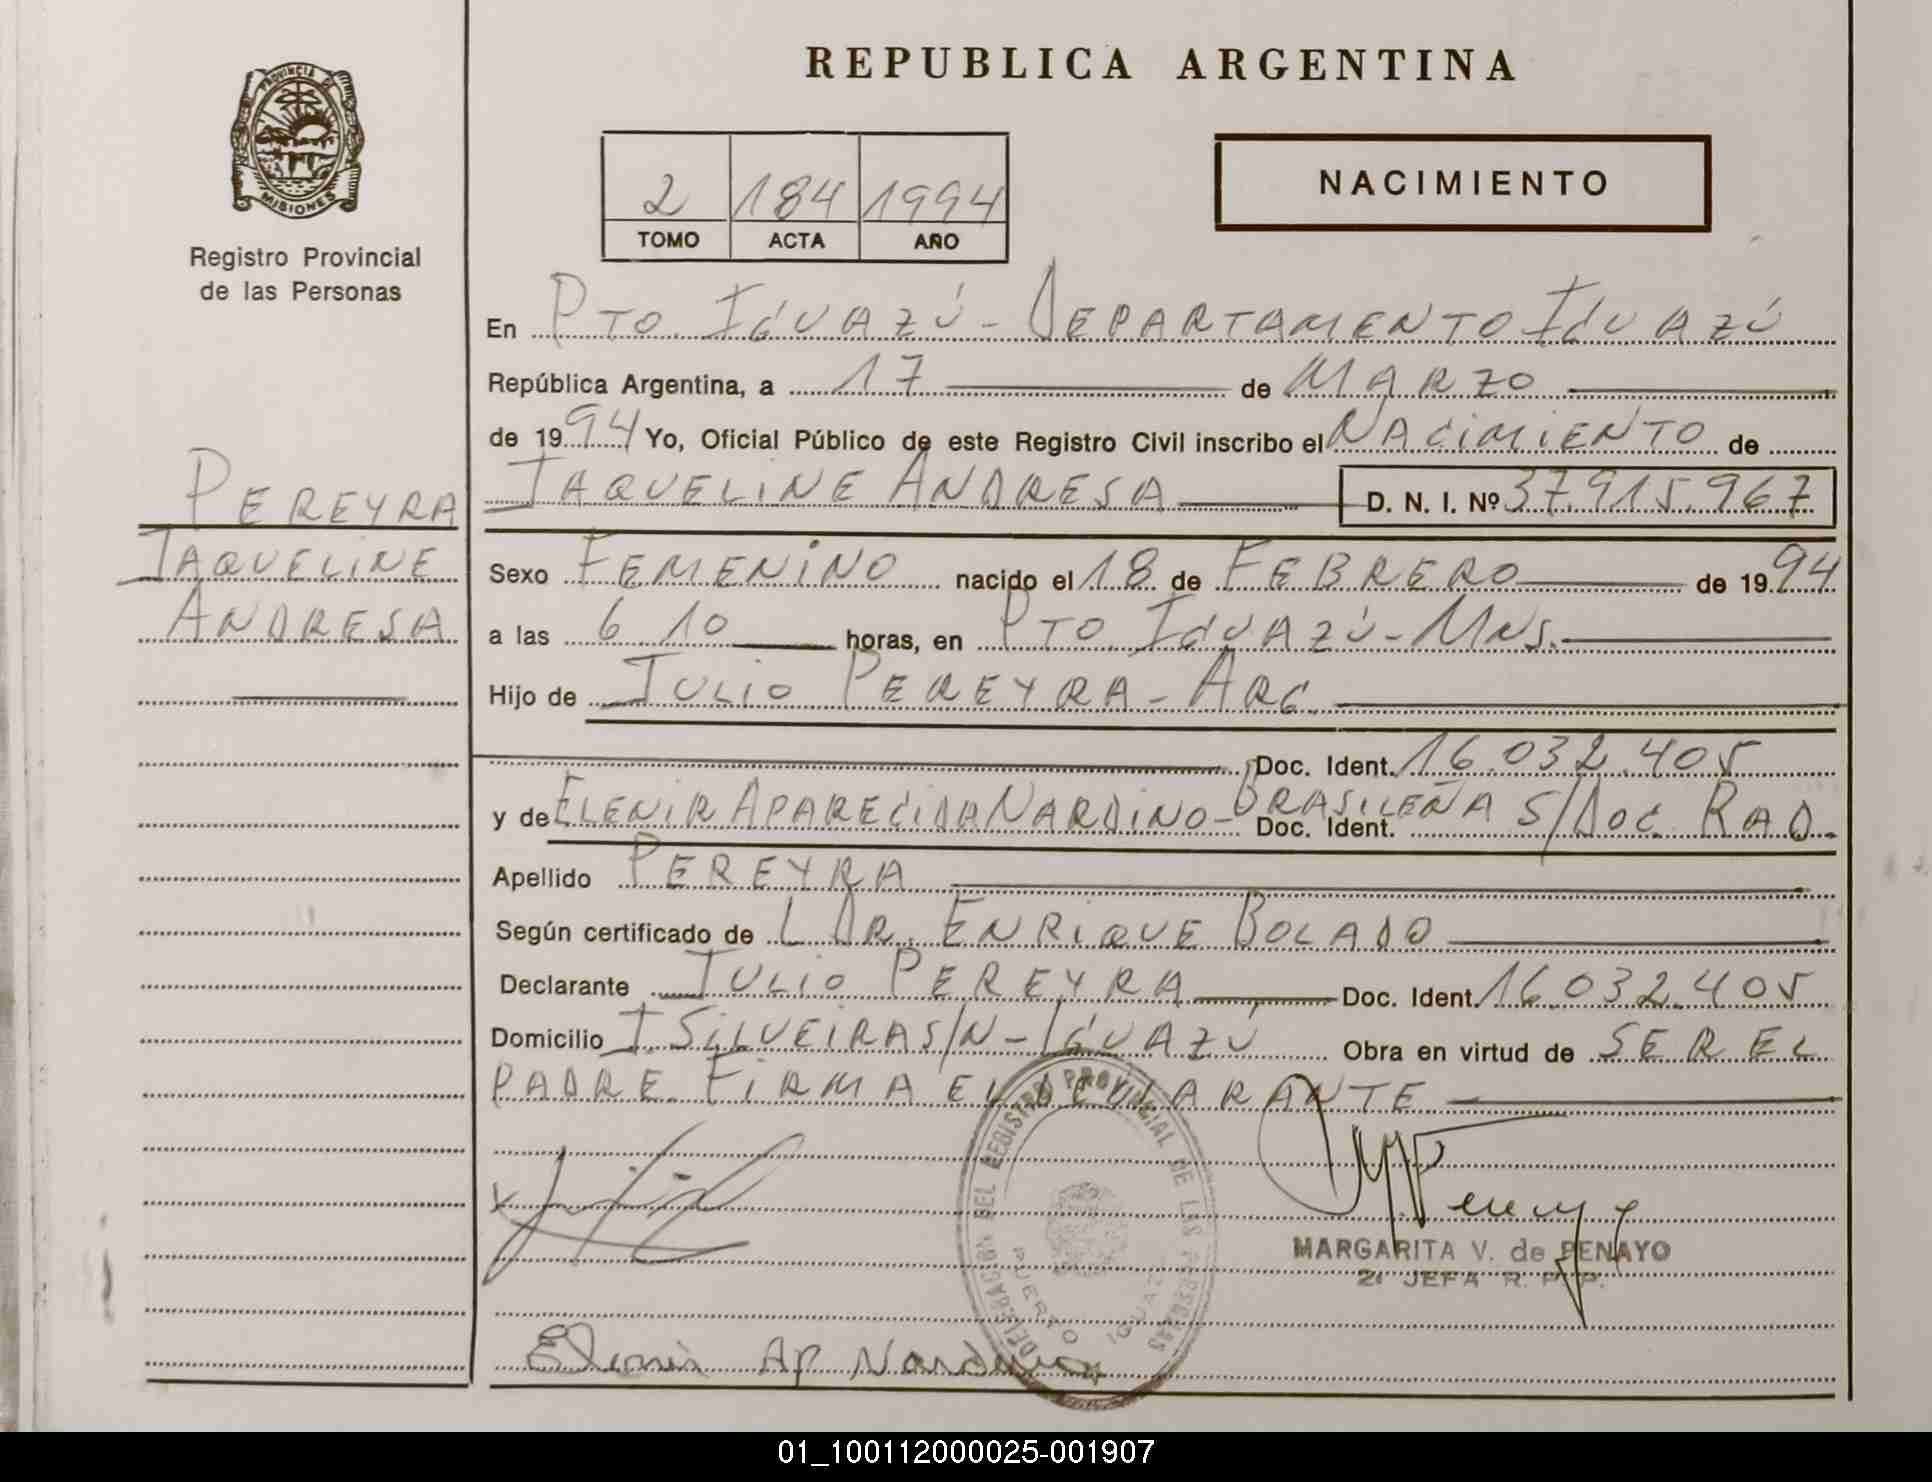 REPUBLICA ARGENTINA
PROVINCIA DE
MISIONES
Registro Provincial
de las Personas
2 184 1994
TOMO ACTA AÑO
NACIMIENTO
En PTO. IGUAZÚ - DEPARTAMENTO IGUAZÚ
República Argentina, a 17 de MARZO
de 1994 Yo, Oficial Público de este Registro Civil inscribo el NACIMIENTO de
JAQUELINE ANDRESA D. N. I. Nº 37.915.967
PEREYRA
JAQUELINE
ANDRESA
Sexo FEMENINO nacido el 18 de FEBRERO de 1994
a las 6 10 horas, en PTO. IGUAZÚ - MNS.
Hijo de JULIO PEREYRA - ARG.
Doc. Ident. 16.032.405
y de ELENIR APARECIDA NARDINO - BRASILEÑA S/DOC. RAD.
Doc. Ident.
Apellido PEREYRA
Según certificado de L DR. ENRIQUE BOLADO
Declarante JULIO PEREYRA Doc. Ident. 16.032.405
Domicilio J. SILVEIRA S/N - IGUAZÚ Obra en virtud de SER EL
PADRE. FIRMA EL DECLARANTE
DELEGACION DEL REGISTRO PROVINCIAL DE LAS PERSONAS
PUERTO IGUAZU
MARGARITA V. de PENAYO
2ª JEFA R. P. P.
Elenir Ap Nardino
01_100112000025-001907